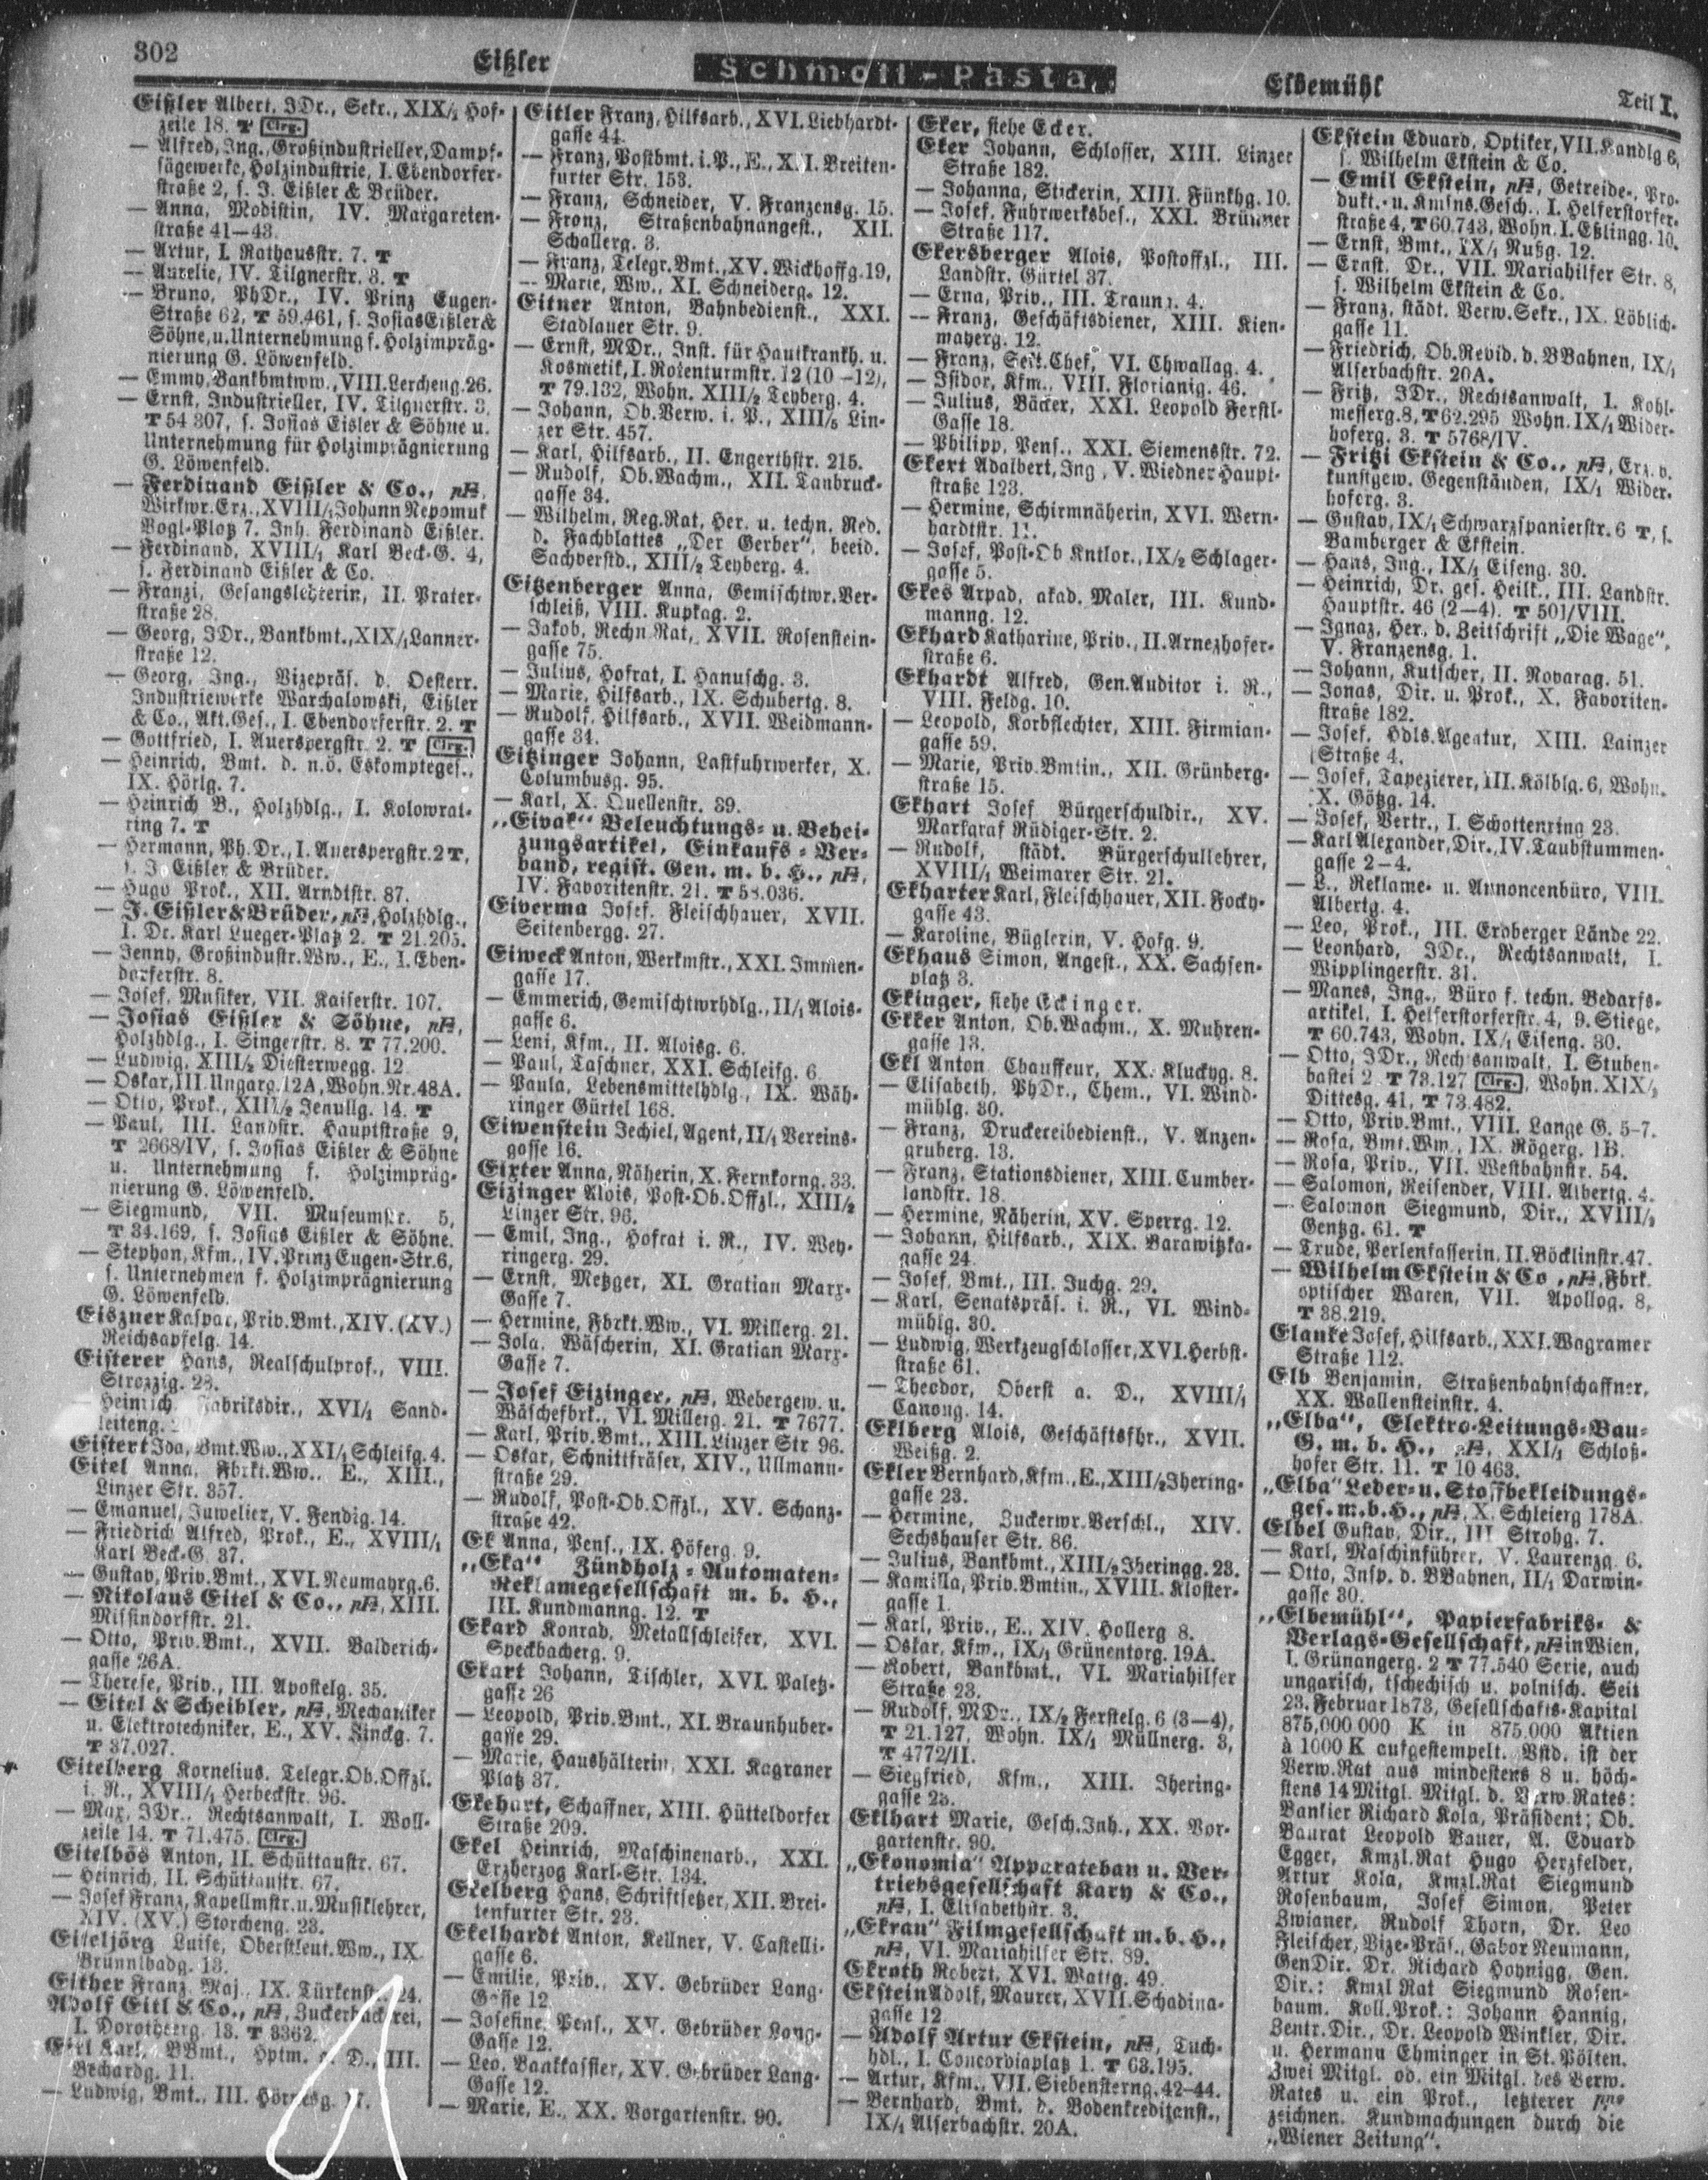 302
Eißler
Schmoll-Pasta
Elbemühl
Teil I.
Eißler Albert, JDr., Sekr., XIX/2 Hof-
zeile 18. T Clrg.
— Alfred, Ing., Großindustrieller, Dampf-
sägewerke, Holzindustrie, I. Ebendorfer-
straße 2, s. J. Eißler & Brüder.
— Anna, Modistin, IV. Margareten-
straße 41—43.
— Artur, I. Rathausstr. 7. T
— Aurelie, IV. Tilgnerstr. 3. T
— Bruno, PhDr., IV. Prinz Eugen-
Straße 62, T 59.461, s. Josias Eißler &
Söhne, u. Unternehmung f. Holzimpräg-
nierung G. Löwenfeld.
— Emmy, Bankbmtww., VIII. Lercheng. 26.
— Ernst, Industrieller, IV. Tilgnerstr. 3,
T 54 307, s. Josias Eisler & Söhne u.
Unternehmung für Holzimprägnierung
G. Löwenfeld.
— Ferdinand Eißler & Co., pH,
Wirkwr.Erz., XVIII/1 Johann Nepomuk
Vogl-Platz 7. Inh. Ferdinand Eißler.
— Ferdinand, XVIII/1 Karl Beck-G. 4,
s. Ferdinand Eißler & Co.
— Franzi, Gesangslehrerin, II. Prater-
straße 28.
— Georg, JDr., Bankbmt., XIX/1 Lanner-
straße 12.
— Georg, Ing., Vizepräs. d. Oesterr.
Industriewerke Warchalowski, Eißler
& Co., Akt.Ges., I. Ebendorferstr. 2. T
— Gottfried, I. Auerspergstr. 2. T Clrg.
— Heinrich, Bmt. d. n.ö. Eskompteges.,
IX. Hörlg. 7.
— Heinrich B., Holzhdlg., I. Kolowrat-
ring 7. T
— Hermann, Ph.Dr., I. Auerspergstr. 2 T,
s. J. Eißler & Brüder.
— Hugo Prok., XII. Arndtstr. 87.
— J. Eißler & Brüder, pH, Holzhdlg.,
I. Dr. Karl Lueger-Platz 2. T 21.205.
— Jenny, Großindustr.Ww., E., I. Eben-
dorferstr. 8.
— Josef, Musiker, VII. Kaiserstr. 107.
— Josias Eißler & Söhne, pH,
Holzhdlg., I. Singerstr. 8. T 77.200.
— Ludwig, XIII/2 Diesterwegg. 12
— Oskar, III. Ungarg. 12A, Wohn. Nr. 48A.
— Otto, Prok., XIII/2 Jenullg. 14. T
— Paul, III. Landstr. Hauptstraße 9,
T 2668/IV, s. Josias Eißler & Söhne
u. Unternehmung f. Holzimpräg-
nierung G. Löwenfeld.
— Siegmund, VII. Museumstr. 5,
T 34.169, s. Josias Eißler & Söhne.
— Stephan, Kfm., IV. Prinz Eugen-Str. 6,
s. Unternehmen f. Holzimprägnierung
G. Löwenfeld.
Eiszner Kaspar, Priv.Bmt., XIV. (XV.)
Reichsapfelg. 14.
Eisterer Hans, Realschulprof., VIII.
Strozzig. 28.
— Heinrich, Fabriksdir., XVI/1 Sand-
leiteng.
Eistert Ida, Bmt.Ww., XXI/1 Schleifg. 4.
Eitel Anna, Fbrkt.Ww., E., XIII.,
Linzer Str. 357.
— Emanuel, Juwelier, V. Fendig. 14.
— Friedrich Alfred, Prok., E., XVIII/1
Karl Beck-G. 37.
— Gustav, Priv.Bmt., XVI. Neumayrg. 6.
— Nikolaus Eitel & Co., pH, XIII.
Missindorfstr. 21.
— Otto, Priv.Bmt., XVII. Balderich-
gasse 26A.
— Therese, Priv., III. Apostelg. 35.
— Eitel & Scheibler, pH, Mechaniker
u. Elektrotechniker, E., XV. Zinckg. 7.
T 37.027.
Eitelberg Kornelius, Telegr.Ob.Offzl.
i. R., XVIII/1 Herbeckstr. 96.
— Max, JDr., Rechtsanwalt, I. Woll-
zeile 14. T 71.475. Clrg.
Eitelbös Anton, II. Schüttaustr. 67.
— Heinrich, II. Schüttaustr. 67.
— Josef Franz, Kapellmstr. u. Musiklehrer,
XIV. (XV.) Storcheng. 23.
Eiteljörg Luise, Oberstleut.Ww., IX.
Brünnlbadg. 13.
Either Franz, Maj., IX. Türkenstr. 24.
Adolf Eitl & Co., pH, Zuckerbäckerei,
I. Dorotheerg. 13. T 3362.
Eitl Karl, BBmt., Hptm. a. D., III.
Bechardg. 11.
— Ludwig, Bmt., III. Hörnesg. 17.
Eitler Franz, Hilfsarb., XVI. Liebhardt-
gasse 44.
— Franz, Postbmt. i. P., E., XII. Breiten-
furter Str. 153.
— Franz, Schneider, V. Franzensg. 15.
— Franz, Straßenbahnangest., XII.
Schallerg. 3.
— Franz, Telegr.Bmt., XV. Wickhoffg. 19,
— Marie, Ww., XI. Schneiderg. 12.
Eitner Anton, Bahnbedienst., XXI.
Stadlauer Str. 9.
— Ernst, MDr., Inst. für Hautkrankh. u.
Kosmetik, I. Rotenturmstr. 12 (10—12),
T 79.132, Wohn. XIII/2 Teyberg. 4.
— Johann, Ob.Verw. i. P., XIII/5 Lin-
zer Str. 457.
— Karl, Hilfsarb., II. Engerthstr. 215.
— Rudolf, Ob.Wachm., XII. Tanbruck-
gasse 34.
— Wilhelm, Reg.Rat, Her. u. techn. Red.
d. Fachblattes „Der Gerber", beeid.
Sachverstd., XIII/2 Teyberg. 4.
Eitzenberger Anna, Gemischtwr.Ver-
schleiß, VIII. Kupkag. 2.
— Jakob, Rechn Rat, XVII. Rosenstein-
gasse 75.
— Julius, Hofrat, I. Hanuschg. 3.
— Marie, Hilfsarb., IX. Schubertg. 8.
— Rudolf, Hilfsarb., XVII. Weidmann-
gasse 34.
Eitzinger Johann, Lastfuhrwerker, X.
Columbusg. 95.
— Karl, X. Quellenstr. 39.
„Eivak" Beleuchtungs- u. Behei-
zungsartikel, Einkaufs-Ver-
band, regist. Gen. m. b. H., pH,
IV. Favoritenstr. 21. T 58.036.
Eiverma Josef, Fleischhauer, XVII.
Seitenbergg. 27.
Eiweck Anton, Werkmstr., XXI. Immen-
gasse 17.
— Emmerich, Gemischtwrhdlg., II/1 Alois-
gasse 6.
— Leni, Kfm., II. Aloisg. 6.
— Paul, Taschner, XXI. Schleifg. 6.
— Paula, Lebensmittelhdlg., IX. Wäh-
ringer Gürtel 168.
Eiwenstein Jechiel, Agent, II/1 Vereins-
gasse 16.
Eixter Anna, Näherin, X. Fernkorng. 33.
Eizinger Alois, Post-Ob.Offzl., XIII/2
Linzer Str. 96.
— Emil, Ing., Hofrat i. R., IV. Wey-
ringerg. 29.
— Ernst, Metzger, XI. Gratian Marx-
Gasse 7.
— Hermine, Fbrkt.Ww., VI. Millerg. 21.
— Jola, Wäscherin, XI. Gratian Marx-
Gasse 7.
— Josef Eizinger, pH, Webergew. u.
Wäschefbrk., VI. Millerg. 21. T 7677.
— Karl, Priv.Bmt., XIII. Linzer Str. 96.
— Oskar, Schnittfräser, XIV., Ullmann-
straße 29.
— Rudolf, Post-Ob.Offzl., XV. Schanz-
straße 42.
Ek Anna, Pens., IX. Höferg. 9.
„Eka" Zündholz-Automaten-
Reklamegesellschaft m. b. H.,
III. Kundmanng. 12. T
Ekard Konrad, Metallschleifer, XVI.
Speckbacherg. 9.
Ekart Johann, Tischler, XVI. Paletz-
gasse 26
— Leopold, Priv.Bmt., XI. Braunhuber-
gasse 29.
— Marie, Haushälterin, XXI. Kagraner
Platz 37.
Ekehart, Schaffner, XIII. Hütteldorfer
Straße 209.
Ekel Heinrich, Maschinenarb., XXI.
Erzherzog Karl-Str. 134.
Ekelberg Hans, Schriftsetzer, XII. Brei-
tenfurter Str. 23.
Ekelhardt Anton, Kellner, V. Castelli-
gasse 6.
— Emilie, Priv., XV. Gebrüder Lang-
Gasse 12.
— Josefine, Pens., XV. Gebrüder Lang-
Gasse 12.
— Leo, Bankkassier, XV. Gebrüder Lang-
Gasse 12.
— Marie, E., XX. Vorgartenstr. 90.
Eker, siehe Ecker.
Eker Johann, Schlosser, XIII. Linzer
Straße 182.
— Johanna, Stickerin, XIII. Fünkhg. 10.
— Josef, Fuhrwerksbes., XXI. Brünner
Straße 117.
Ekersberger Alois, Postoffzl., III.
Landstr. Gürtel 37.
— Erna, Priv., III. Traung. 4.
— Franz, Geschäftsdiener, XIII. Kien-
mayerg. 12.
— Franz, Sekt.Chef, VI. Chwallag. 4.
— Isidor, Kfm., VIII. Florianig. 46.
— Julius, Bäcker, XXI. Leopold Ferstl-
Gasse 18.
— Philipp, Pens., XXI. Siemensstr. 72.
Ekert Adalbert, Ing., V. Wiedner Haupt-
straße 123.
— Hermine, Schirmnäherin, XVI. Wern-
hardtstr. 11.
— Josef, Post-Ob Kntlor., IX/2 Schlager-
gasse 5.
Ekes Arpad, akad. Maler, III. Kund-
manng. 12.
Ekhard Katharine, Priv., II. Arnezhofer-
straße 6.
Ekhardt Alfred, Gen.Auditor i. R.,
VIII. Feldg. 10.
— Leopold, Korbflechter, XIII. Firmian-
gasse 59.
— Marie, Priv.Bmtin., XII. Grünberg-
straße 15.
Ekhart Josef Bürgerschuldir., XV.
Markgraf Rüdiger-Str. 2.
— Rudolf, städt. Bürgerschullehrer,
XVIII/1 Weimarer Str. 21.
Ekharter Karl, Fleischhauer, XII. Focky-
gasse 43.
— Karoline, Büglerin, V. Hofg. 9.
Ekhaus Simon, Angest., XX. Sachsen-
platz 3.
Ekinger, siehe Eckinger.
Ekker Anton, Ob.Wachm., X. Muhren-
gasse 13.
Ekl Anton Chauffeur, XX. Kluckyg. 8.
— Elisabeth, PhDr., Chem., VI. Wind-
mühlg. 30.
— Franz, Druckereibedienst., V. Anzen-
gruberg. 13.
— Franz, Stationsdiener, XIII. Cumber-
landstr. 18.
— Hermine, Näherin, XV. Sperrg. 12.
— Johann, Hilfsarb., XIX. Barawitzka-
gasse 24
— Josef, Bmt., III. Juchg. 29.
— Karl, Senatspräs. i. R., VI. Wind-
mühlg. 30.
— Ludwig, Werkzeugschlosser, XVI. Herbst-
straße 61.
— Theodor, Oberst a. D., XVIII/1
Canong. 14.
Eklberg Alois, Geschäftsfhr., XVII.
Weißg. 2.
Ekler Bernhard, Kfm., E., XIII/2 Jhering-
gasse 23.
— Hermine, Zuckerwr.Verschl., XIV.
Sechshauser Str. 86.
— Julius, Bankbmt., XIII/2 Jheringg. 23.
— Kamilla, Priv.Bmtin., XVIII. Kloster-
gasse 1.
— Karl, Priv., E., XIV. Hollerg 8.
— Oskar, Kfm., IX/1 Grünentorg. 19A.
— Robert, Bankbmt., VI. Mariahilfer
Straße 23.
— Rudolf, MDr., IX/2 Ferstelg. 6 (3—4),
T 21.127, Wohn. IX/1 Müllnerg. 3,
T 4772/II.
— Siegfried, Kfm., XIII. Jhering-
gasse 23.
Eklhart Marie, Gesch.Inh., XX. Vor-
gartenstr. 90.
„Ekonomia" Apparatebau u. Ver-
triebsgesellschaft Kary & Co.,
pH, I. Elisabethstr. 3.
„Ekran" Filmgesellschaft m. b. H.,
pH, VI. Mariahilfer Str. 89.
Ekroth Robert, XVI. Wattg. 49.
Ekstein Adolf, Maurer, XVII. Schadina-
gasse 12
— Adolf Artur Ekstein, pH, Tuch-
hdl., I. Concordiaplatz 1. T 63.195.
— Artur, Kfm., VII. Siebensterng. 42—44.
— Bernhard, Bmt. d. Bodenkreditanst.,
IX/1 Alserbachstr. 20A.
Ekstein Eduard, Optiker, VII. Kandlg 6,
s. Wilhelm Ekstein & Co.
— Emil Ekstein, pH, Getreide-, Pro-
dukt.- u. Kmsns.Gesch., I. Helferstorfer-
straße 4, T 60.743, Wohn. I. Eßlingg. 10.
— Ernst, Bmt., IX/1 Nußg. 12.
— Ernst, Dr., VII. Mariahilfer Str. 8,
s. Wilhelm Ekstein & Co.
— Franz, städt. Verw.Sekr., IX. Löblich-
gasse 11.
— Friedrich, Ob.Revid. d. BBahnen, IX/1
Alserbachstr. 20A.
— Fritz, JDr., Rechtsanwalt, I. Kohl-
messerg. 8, T 62.295 Wohn. IX/1 Wider-
hoferg. 3. T 5768/IV.
— Fritzi Ekstein & Co., pH, Erz. v.
kunstgew. Gegenständen, IX/1 Wider-
hoferg. 3.
— Gustav, IX/1 Schwarzspanierstr. 6 T, s.
Bamberger & Ekstein.
— Hans, Ing., IX/1 Eiseng. 30.
— Heinrich, Dr. ges. Heilk., III. Landstr.
Hauptstr. 46 (2—4). T 501/VIII.
— Ignaz, Her. d. Zeitschrift „Die Wage",
V. Franzensg. 1.
— Johann, Kutscher, II. Novarag. 51.
— Jonas, Dir. u. Prok., X. Favoriten-
straße 182.
— Josef, Hdls.Agentur, XIII. Lainzer
Straße 4.
— Josef, Tapezierer, III. Kölblg. 6, Wohn.
X. Götzg. 14.
— Josef, Vertr., I. Schottenring 23.
— Karl Alexander, Dir., IV. Taubstummen-
gasse 2—4.
— L., Reklame- u. Annoncenbüro, VIII.
Albertg. 4.
— Leo, Prok., III. Erdberger Lände 22.
— Leonhard, JDr., Rechtsanwalt, I.
Wipplingerstr. 31.
— Manes, Ing., Büro f. techn. Bedarfs-
artikel, I. Helferstorferstr. 4, 9. Stiege,
T 60.743, Wohn. IX/1 Eiseng. 30.
— Otto, JDr., Rechtsanwalt, I. Stuben-
bastei 2 T 73.127 Clrg., Wohn. XIX/2
Dittesg. 41, T 73.482.
— Otto, Priv.Bmt., VIII. Lange G. 5-7.
— Rosa, Bmt.Ww., IX. Rögerg. 1B.
— Rosa, Priv., VII. Westbahnstr. 54.
— Salomon, Reisender, VIII. Albertg. 4.
— Salomon Siegmund, Dir., XVIII/2
Gentzg. 61. T
— Trude, Perlenfasserin, II. Böcklinstr. 47.
— Wilhelm Ekstein & Co., pH, Fbrk.
optischer Waren, VII. Apollog. 8,
T 38.219.
Elanke Josef, Hilfsarb., XXI. Wagramer
Straße 112.
Elb Benjamin, Straßenbahnschaffner,
XX. Wallensteinstr. 4.
„Elba", Elektro-Leitungs-Bau-
G. m. b. H., pH, XXI/1 Schloß-
hofer Str. 11. T 10 463.
„Elba" Leder- u. Stoffbekleidungs-
ges. m. b. H., pH, X. Schleierg 178A.
Elbel Gustav, Dir., III Strohg. 7.
— Karl, Maschinführer, V. Laurenzg. 6.
— Otto, Insp. d. BBahnen, II/1 Darwin-
gasse 30.
„Elbemühl", Papierfabriks- &
Verlags-Gesellschaft, pH in Wien,
I. Grünangerg. 2 T 77.540 Serie, auch
ungarisch, tschechisch u. polnisch. Seit
23. Februar 1873, Gesellschafts-Kapital
875,000.000 K in 875.000 Aktien
à 1000 K aufgestempelt. Vstd. ist der
Verw.Rat aus mindestens 8 u. höch-
stens 14 Mitgl. Mitgl. d. Verw.Rates:
Bankier Richard Kola, Präsident; Ob.
Baurat Leopold Bauer, A. Eduard
Egger, Kmzl.Rat Hugo Herzfelder,
Artur Kola, Kmzl.Rat Siegmund
Rosenbaum, Josef Simon, Peter
Zwianer, Rudolf Thorn, Dr. Leo
Fleischer, Vize-Präs., Gabor Neumann,
GenDir. Dr. Richard Hoynigg, Gen.
Dir.: Kmzl Rat Siegmund Rosen-
baum. Koll.Prok.: Johann Hannig,
Zentr.Dir., Dr. Leopold Winkler, Dir.
u. Hermann Ehminger in St. Pölten.
Zwei Mitgl. od. ein Mitgl. des Verw.
Rates u. ein Prok., letzterer ppa
zeichnen. Kundmachungen durch die
„Wiener Zeitung".